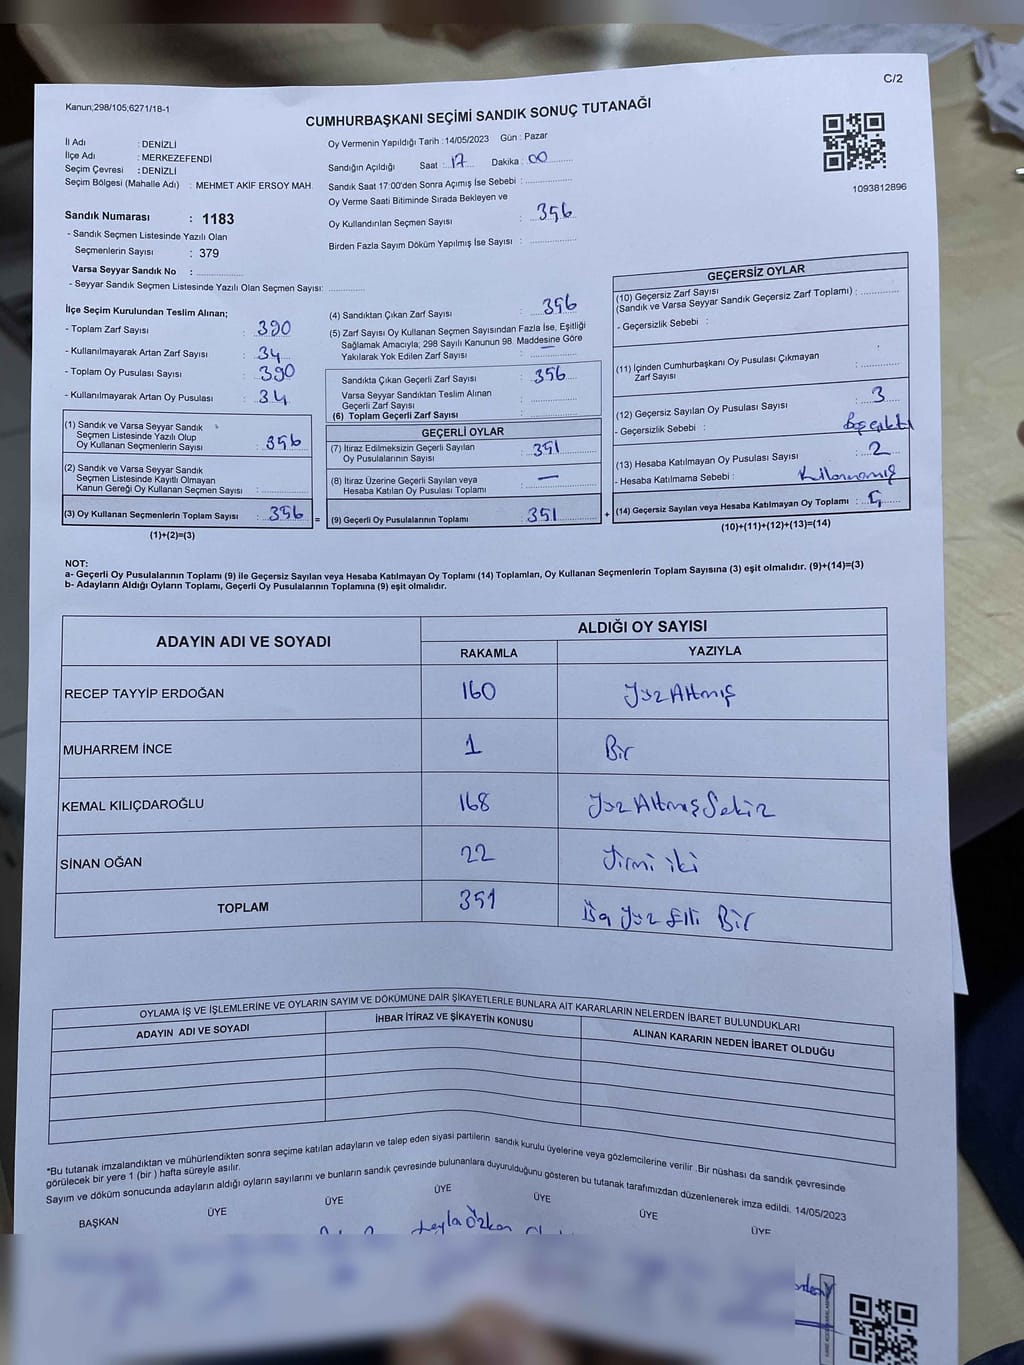 C/2
Kanun,298/105,6271/18-1
CUMHURBAŞKANI SEÇİMİ SANDIK SONUÇ TUTANAĞI
İl Adı : DENİZLİ
İlçe Adı : MERKEZEFENDİ
Seçim Çevresi : DENİZLİ
Seçim Bölgesi (Mahalle Adı) : MEHMET AKİF ERSOY MAH.
Sandık Numarası : 1183
- Sandık Seçmen Listesinde Yazılı Olan
Seçmenlerin Sayısı : 379
Varsa Seyyar Sandık No :
- Seyyar Sandık Seçmen Listesinde Yazılı Olan Seçmen Sayısı:
Oy Vermenin Yapıldığı Tarih : 14/05/2023 Gün : Pazar
Sandığın Açıldığı Saat : 17 Dakika : 00
Sandık Saat 17:00'den Sonra Açımış İse Sebebi :
Oy Verme Saati Bitiminde Sırada Bekleyen ve
Oy Kullandırılan Seçmen Sayısı : 356
Birden Fazla Sayım Döküm Yapılmış İse Sayısı :
1093812896
İlçe Seçim Kurulundan Teslim Alınan;
- Toplam Zarf Sayısı : 390
- Kullanılmayarak Artan Zarf Sayısı : 34
- Toplam Oy Pusulası Sayısı : 390
- Kullanılmayarak Artan Oy Pusulası : 34
(1) Sandık ve Varsa Seyyar Sandık
Seçmen Listesinde Yazılı Olup
Oy Kullanan Seçmenlerin Sayısı : 356
(2) Sandık ve Varsa Seyyar Sandık
Seçmen Listesinde Kayıtlı Olmayan
Kanun Gereği Oy Kullanan Seçmen Sayısı :
(3) Oy Kullanan Seçmenlerin Toplam Sayısı : 356 =
(1)+(2)=(3)
(4) Sandıktan Çıkan Zarf Sayısı : 356
(5) Zarf Sayısı Oy Kullanan Seçmen Sayısından Fazla İse, Eşitliği
Sağlamak Amacıyla; 298 Sayılı Kanunun 98. Maddesine Göre
Yakılarak Yok Edilen Zarf Sayısı : —
Sandıkta Çıkan Geçerli Zarf Sayısı : 356
Varsa Seyyar Sandıktan Teslim Alınan
Geçerli Zarf Sayısı :
(6) Toplam Geçerli Zarf Sayısı :
GEÇERLİ OYLAR
(7) İtiraz Edilmeksizin Geçerli Sayılan
Oy Pusulalarının Sayısı : 351
(8) İtiraz Üzerine Geçerli Sayılan veya
Hesaba Katılan Oy Pusulası Toplamı : —
(9) Geçerli Oy Pusulalarının Toplamı : 351 +
GEÇERSİZ OYLAR
(10) Geçersiz Zarf Sayısı
(Sandık ve Varsa Seyyar Sandık Geçersiz Zarf Toplamı) :
- Geçersizlik Sebebi :
(11) İçinden Cumhurbaşkanı Oy Pusulası Çıkmayan
Zarf Sayısı :
(12) Geçersiz Sayılan Oy Pusulası Sayısı : 3
- Geçersizlik Sebebi : Boş çıktı
(13) Hesaba Katılmayan Oy Pusulası Sayısı : 2
- Hesaba Katılmama Sebebi : Kullanmamış
(14) Geçersiz Sayılan veya Hesaba Katılmayan Oy Toplamı : 5
(10)+(11)+(12)+(13)=(14)
NOT:
a- Geçerli Oy Pusulalarının Toplamı (9) ile Geçersiz Sayılan veya Hesaba Katılmayan Oy Toplamı (14) Toplamları, Oy Kullanan Seçmenlerin Toplam Sayısına (3) eşit olmalıdır. (9)+(14)=(3)
b- Adayların Aldığı Oyların Toplamı, Geçerli Oy Pusulalarının Toplamına (9) eşit olmalıdır.
ADAYIN ADI VE SOYADI ALDIĞI OY SAYISI
RAKAMLA YAZIYLA
RECEP TAYYİP ERDOĞAN 160 Yüz Altmış
MUHARREM İNCE 1 Bir
KEMAL KILIÇDAROĞLU 168 Yüz Altmış Sekiz
SİNAN OĞAN 22 Yirmi iki
TOPLAM 351 Üç Yüz Elli Bir
OYLAMA İŞ VE İŞLEMLERİNE VE OYLARIN SAYIM VE DÖKÜMÜNE DAİR ŞİKAYETLERLE BUNLARA AİT KARARLARIN NELERDEN İBARET BULUNDUKLARI
ADAYIN ADI VE SOYADI İHBAR İTİRAZ VE ŞİKAYETİN KONUSU ALINAN KARARIN NEDEN İBARET OLDUĞU
*Bu tutanak imzalandıktan ve mühürlendikten sonra seçime katılan adayların ve talep eden siyasi partilerin sandık kurulu üyelerine veya gözlemcilerine verilir .Bir nüshası da sandık çevresinde
görülecek bir yere 1 (bir ) hafta süreyle asılır.
Sayım ve döküm sonucunda adayların aldığı oyların sayılarını ve bunların sandık çevresinde bulunanlara duyurulduğunu gösteren bu tutanak tarafımızdan düzenlenerek imza edildi. 14/05/2023
BAŞKAN ÜYE ÜYE ÜYE ÜYE ÜYE ÜYE
Leyla Özkan